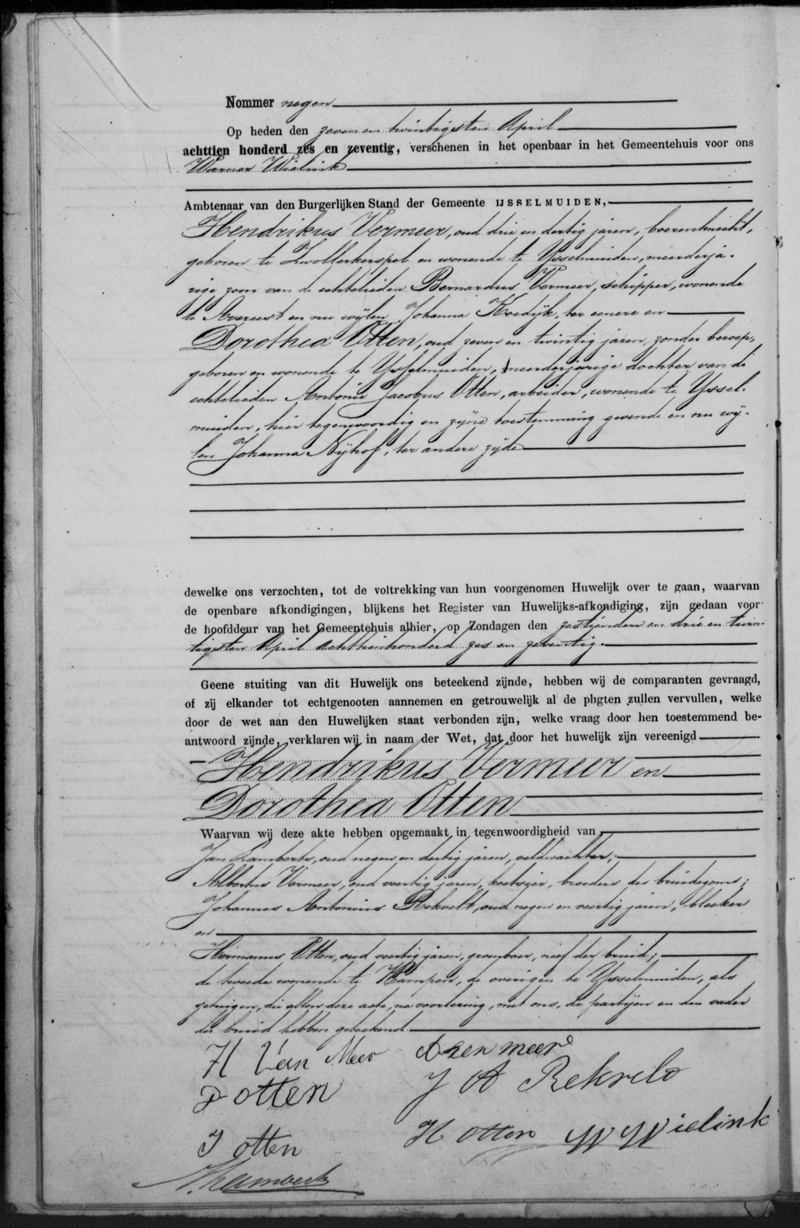 Nommer negen
Op heden den zevenentwintigsten April
achttien honderd zes en zeventig, verschenen in het openbaar in het Gemeentehuis voor ons
Warner Wielink
Ambtenaar van den Burgerlijken Stand der Gemeente IJSSELMUIDEN,
Hendrikus Vermeer, oud drie en dertig jaren, boerenknecht,
geboren te Zwollerkerspel en wonende te IJsselmuiden, meerderja-
rige zoon van de echtelieden Bernardus Vermeer, schipper, wonende
te Avereest en nu wijlen Johanna Kredijk, ter eenre en
Dorothea Otten, oud zeven en twintig jaren, zonder beroep,
geboren en wonende te IJsselmuiden, meerderjarige dochter van de
echtelieden Antonie Jacobus Otten, arbeider, wonende te IJssel-
muiden, hier tegenwoordig en zijne toestemming gevende en nu wij-
len Johanna Nijhof, ter andere zijde
dewelke ons verzochten, tot de voltrekking van hun voorgenomen Huwelijk over te gaan, waarvan
de openbare afkondigingen, blijkens het Register van Huwelijks-afkondiging, zijn gedaan voor
de hoofddeur van het Gemeentehuis alhier, op Zondagen den zestienden en drie en twin-
tigsten April achttienhonderd zes en zeventig.
Geene stuiting van dit Huwelijk ons beteekend zijnde, hebben wij de comparanten gevraagd,
of zij elkander tot echtgenooten aannemen en getrouwelijk al de pligten zullen vervullen, welke
door de wet aan den Huwelijken staat verbonden zijn, welke vraag door hen toestemmend be-
antwoord zijnde, verklaren wij in naam der Wet, dat door het huwelijk zijn vereenigd
Hendrikus Vermeer en
Dorothea Otten
Waarvan wij deze akte hebben opgemaakt in tegenwoordigheid van
Jan Lamberts, oud negen en dertig jaren, veldwachter,
Albertus Vermeer, oud veertig jaren, broeder des bruidegoms;
Johannes Antonius Rekveld, oud negen en veertig jaren, bleeker
en
Hermanus Otten, oud veertig jaren, groenboer, neef der bruid;
de tweede wonende te Kampen, de overigen te IJsselmuiden, als
getuigen, die allen deze acte, na voorlezing, met ons, de partijen en den vader
der bruid hebben geteekend
H Van Meer A van meer
D otten J A Rekvelo
J otten H otten W Wielink